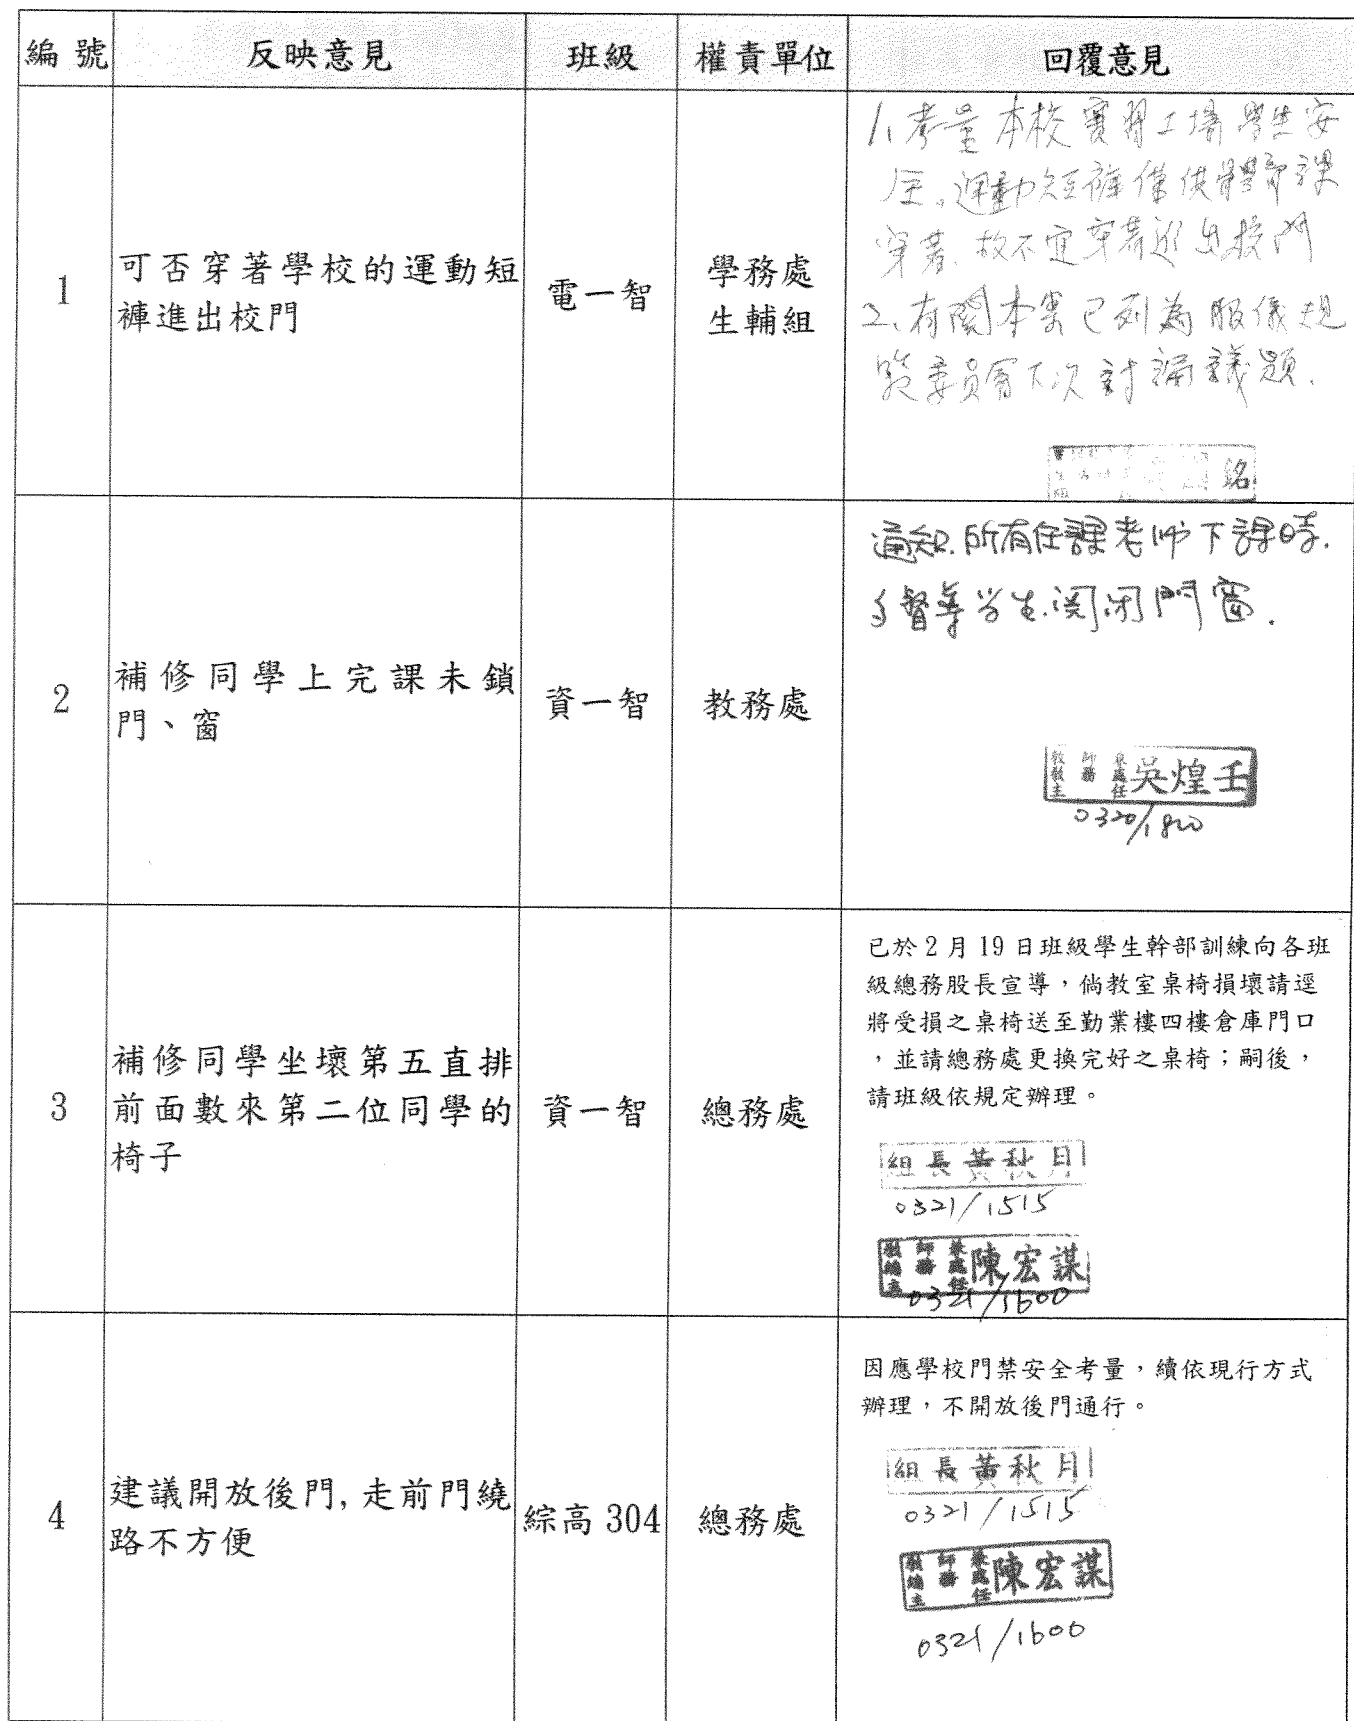 編號 反映意見 班級 權責單位 回覆意見
1
可否穿著學校的運動短
褲進出校門
電一智
學務處
生輔組
1、考量本校實習工場學生安
全。運動短褲僅供體育課
穿著,故不宜穿著進出校門
2、有關本案已列為服儀規
範委員會下次討論議題.
銘
2
補修同學上完課未鎖
門、窗
資一智
教務處
通知所有任課老師下課時.
督導学生関闭門窗.
教師兼
教務處
主任
吳煌壬
0320/1820
3
補修同學坐壞第五直排
前面數來第二位同學的
椅子
資一智
總務處
已於2月19日班級學生幹部訓練向各班
級總務股長宣導,倘教室桌椅損壞請逕
將受損之桌椅送至勤業樓四樓倉庫門口
,並請總務處更換完好之桌椅;嗣後,
請班級依規定辦理。
組長黃秋月
0321/1515
教師兼
總務處
主任
陳宏謀
0321/1600
4
建議開放後門,走前門繞
路不方便
綜高304
總務處
因應學校門禁安全考量,續依現行方式
辦理,不開放後門通行。
組長黃秋月
0321/1515
教師兼
總務處
主任
陳宏謀
0321/1600